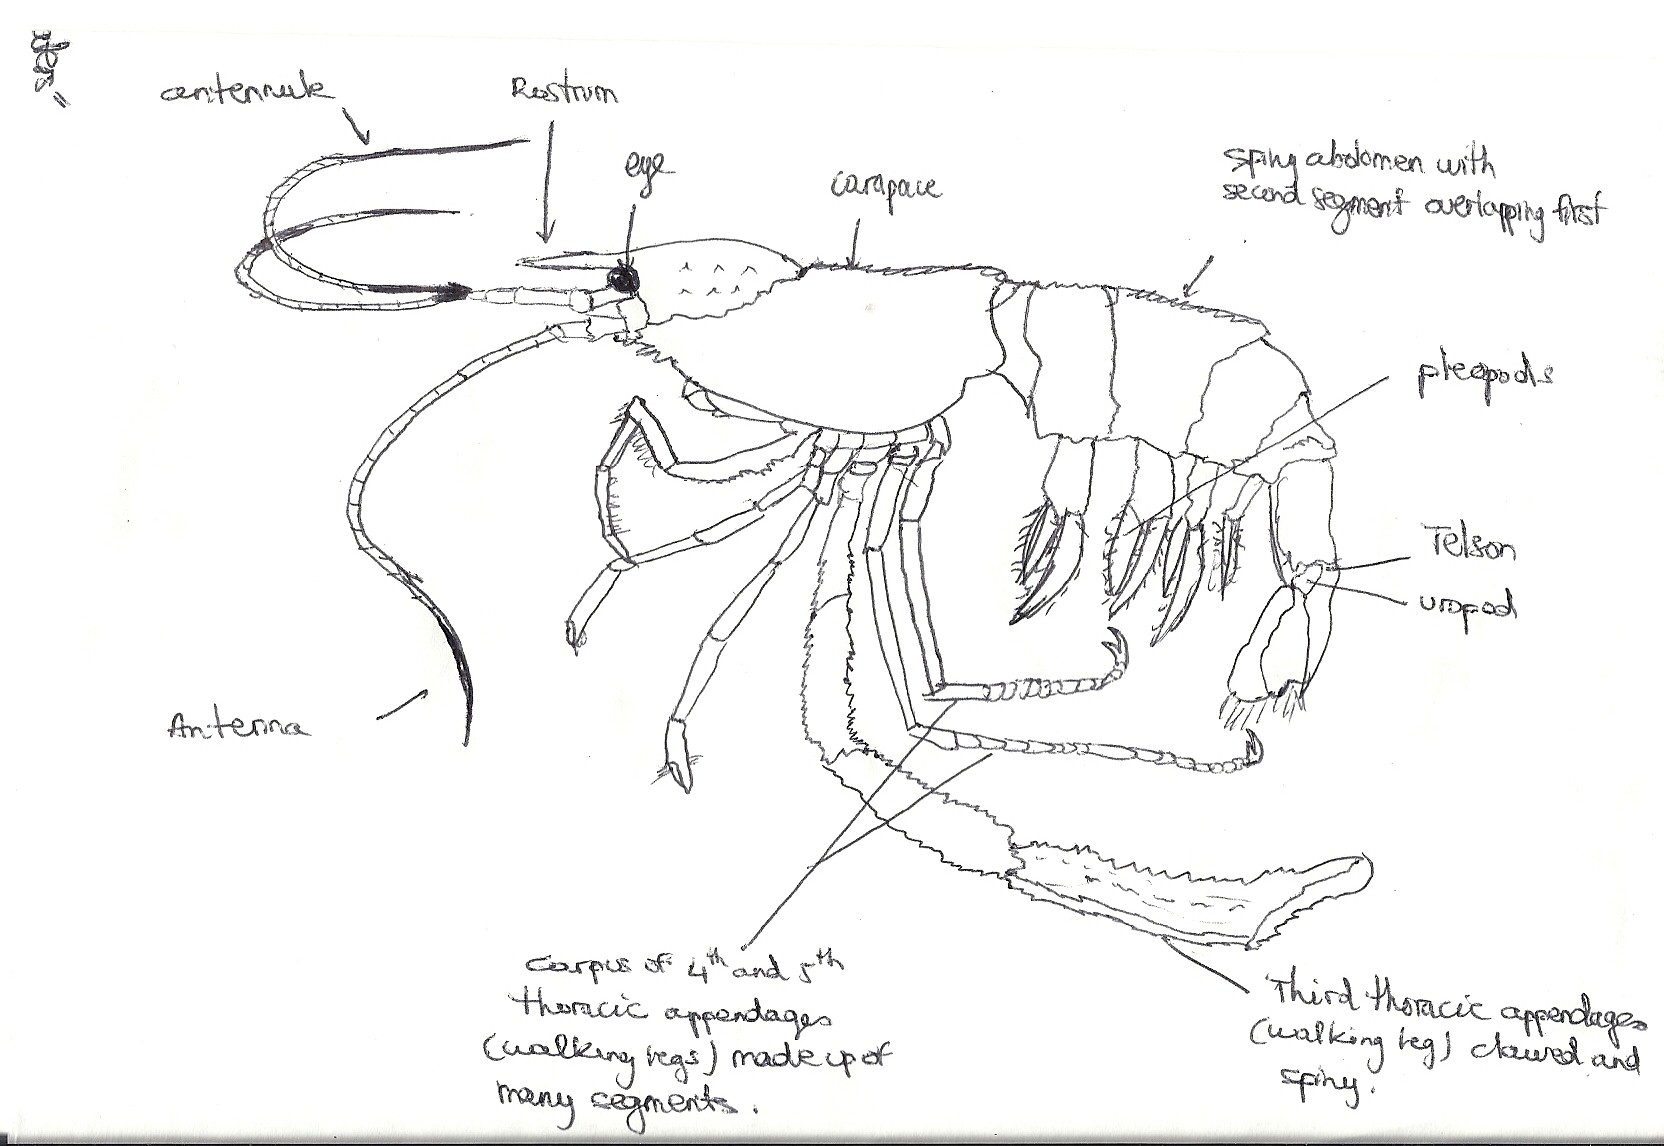 antennule
Rostrum
eye
carapace
Spiny abdomen with
second segment overlapping first
pleopods
Telson
uropod
Antenna
Carpus of 4th and 5th
thoracic appendages
(walking legs) made up of
many segments.
Third thoracic appendages
(walking leg) clawed and
spiny.